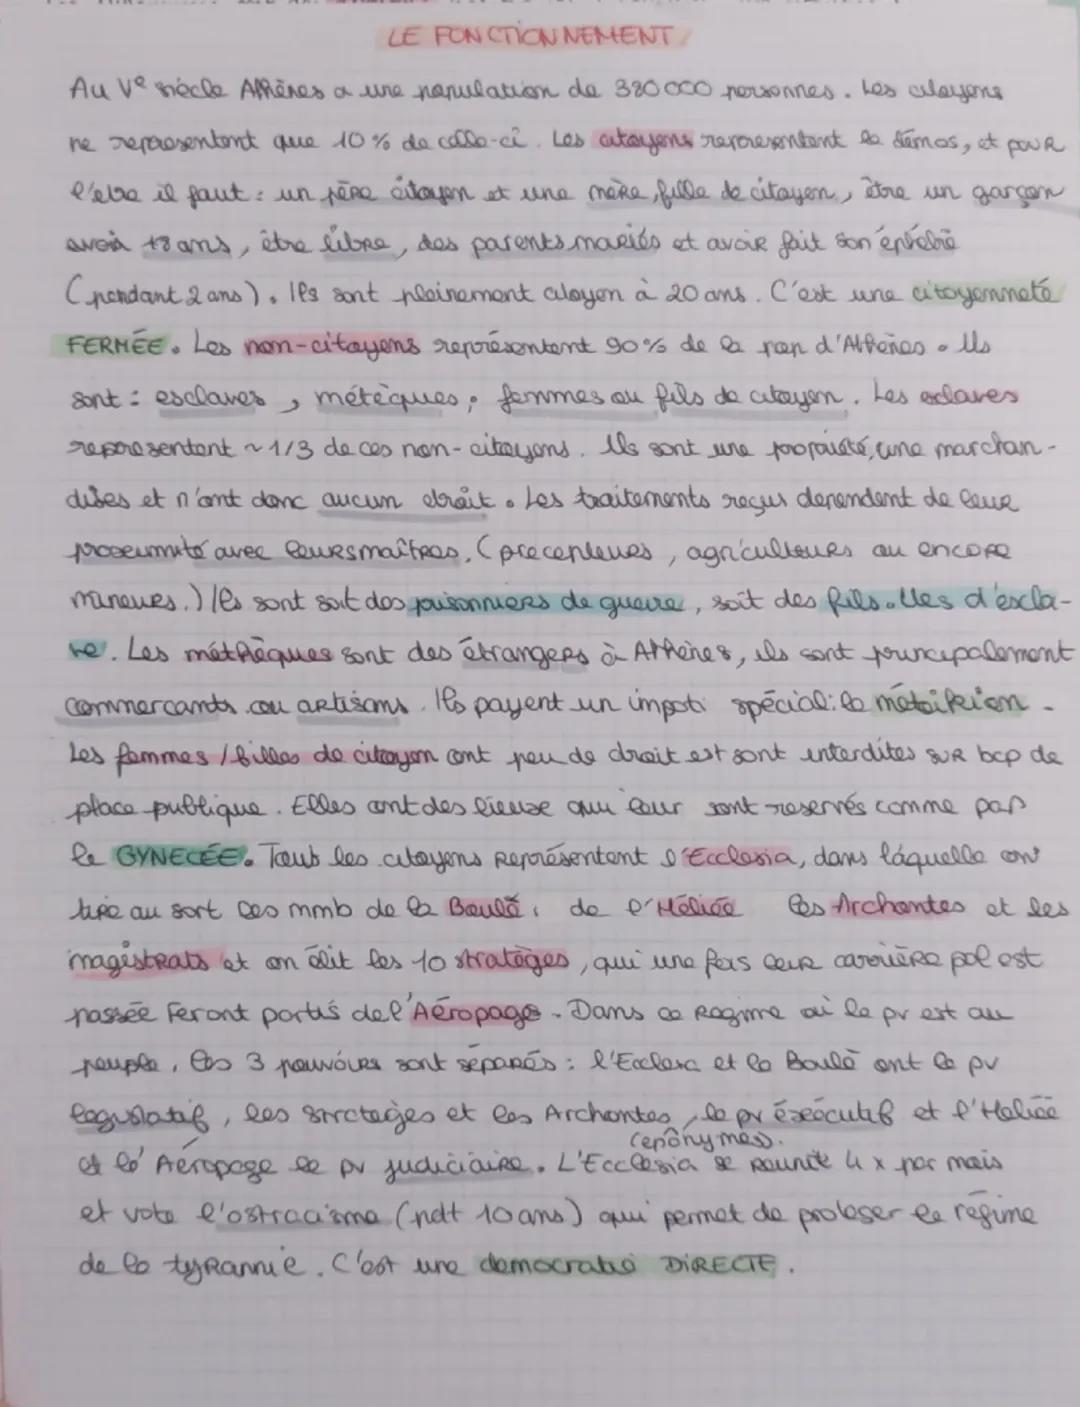 LE FONCTIONNEMENT
Au Ve siècle Athènes a une population de 380 000 personnes. Les citoyens
ne representent que 10% de celle-ci. Les citoyens representent le démos, et pour
l'etre il faut : un père citoyen et une mère, fille de citoyen, être un garçon
avoir +18 ans, être libre, des parents mariés et avoir fait son éphébie
(pendant 2 ans). Ils sont pleinement citoyen à 20 ans. C'est une citoyenneté
FERMÉE. Les non-citoyens représentent 90% de la pop d'Athènes. Ils
sont : esclaves, métèques, femmes ou fils de citoyen. Les eclaves
representent ~1/3 de ces non-citoyens. Ils sont une propriété, une marchan-
dises et n'ont donc aucun droit. Les traitements reçus dependent de leur
proximité avec leurs maîtres. (precepteurs, agriculteurs ou encore
mineurs.) Ils sont soit des prisonniers de guerre, soit des fils.lles d'escla-
ve. Les méthèques sont des étrangers à Athènes, ils sont principalement
commercants ou artisans. Ils payent un impot spécial: le métoikion.
Les femmes / filles de citoyen ont peu de droit est sont interdites sur bcp de
place publique. Elles ont des lieux qui leur sont reservés comme par
le GYNECÉE. Tout les citoyens Représentent l'Ecclesia, dans laquelle on
tire au sort les mmb de la Boulè, de l'Héliée les Archontes et les
magistrats et on élit les 10 stratèges, qui une fois leur carrière pol est
passée Feront partis de l'Aéropage. Dans ce Regime où le pv est au
peuple, les 3 pouvoirs sont séparés : l'Ecclesia et la Boulè ont le pv
legislatif, les stratèges et les Archontes, le pv éxécutif et l'Héliée
(eponymes).
et l' Aéropage le pv judiciaire. L'Ecclesia se réunit 4 x par mois
et vote l'ostracisme (pdt 10 ans) qui permet de proteger le régime
de la tyrannie. C'est une democratie DIRECTE.